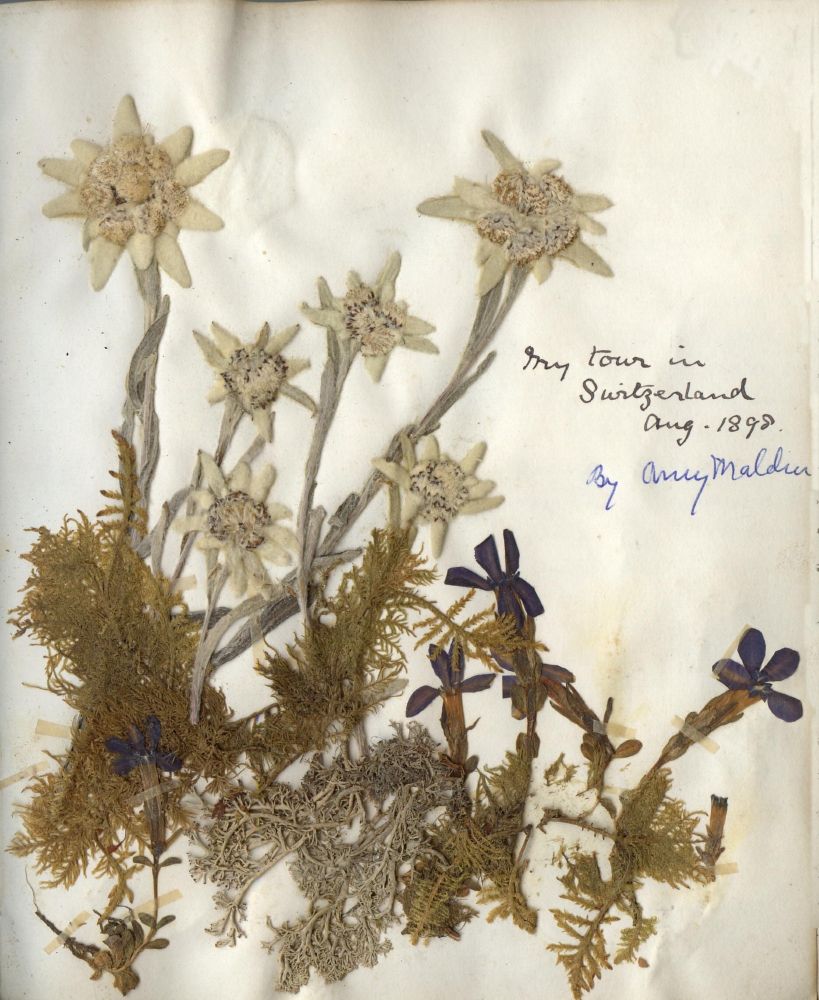 My tour in
Switzerland
Aug. 1898.
By Amy Maldin